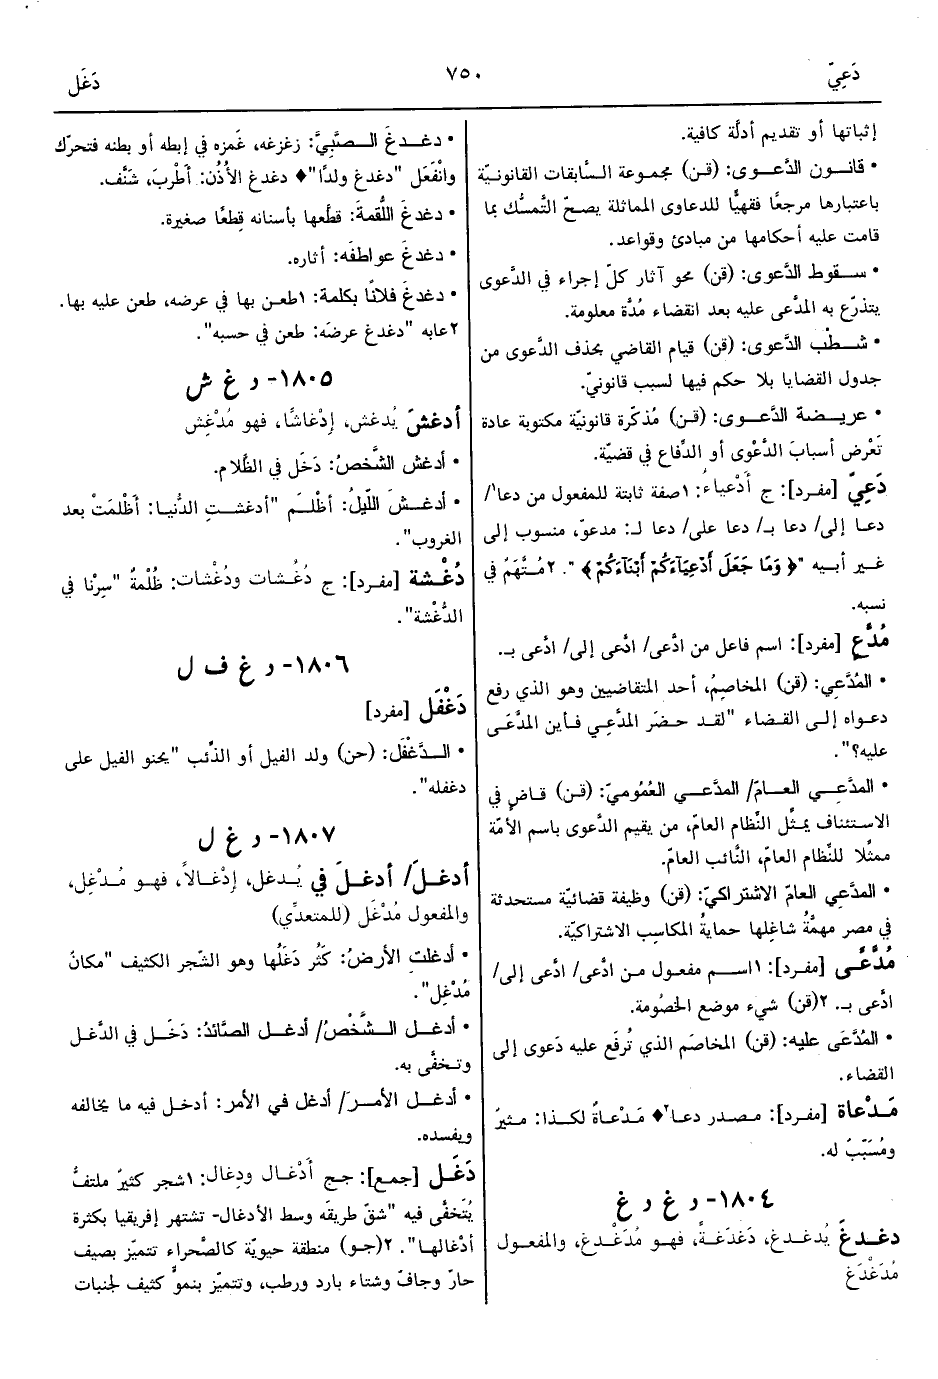 دَعِيّ
٧٥٠
دَغَل
إثباتها أو تقديم أدلّة كافية.
• قانــون الدَّعــوى: (قن) مجموعة السَّابقات القانونيّة
باعتبارها مرجعًا فقهيًّا للدعاوى المماثلة يصحّ التَّمسُّك بما
قامت عليه أحكامها من مبادئ وقواعد.
• ســقوط الدَّعوى: (قن) محو آثار كلّ إجراء في الدَّعوى
يتذرّع به المدَّعى عليه بعد انقضاء مُدَّة معلومة.
• شــطْب الدَّعوى: (قن) قيام القاضي بحذف الدَّعوى من
جدول القضايا بلا حكم فيها لسبب قانونيّ.
• عريــضة الدَّعــوى: (قن) مُذكّرة قانونيّة مكتوبة عادة
تَعْرض أسبابَ الدَّعْوى أو الدِّفاع في قضيّة.
دَعِيّ [مفرد]: ج أَدْعِياءُ: ١صفة ثابتة للمفعول من دعا١/
دعـا إلى/ دعا بـ/ دعا على/ دعا لـ: مدعوّ، منسوب إلى
غــير أبــيه "﴿ وَمَا جَعَلَ أَدْعِيَآءَكُمْ أَبْنَآءَكُمْ ﴾". ٢مُتَّهَمٌ في
نسبه.
مُدَّعٍ [مفرد]: اسم فاعل من ادَّعى/ ادَّعى إلى/ ادَّعى بـ.
• المُدَّعِي: (قن) المخاصِمُ، أحد المتقاضيين وهو الذي رفع
دعـواه إلـى القـضاء "لقـد حـضَر المدَّعِـي فـأين المدَّعَـى
عليه؟".
• المدَّعِــي العــامّ/ المدَّعــي العُمُومــيّ: (قــن) قــاضٍ في
الاسـتئناف يمثِّل النِّظام العامّ، من يقيم الدَّعوى باسم الأمّة
ممثّلًا للنِّظام العامّ، النَّائب العامّ.
• المدَّعي العامّ الاشتراكيّ: (قن) وظيفة قضائيّة مستحدثة
في مصر مهمَّةُ شاغلها حمايةُ المكاسب الاشتراكيّة.
مُدَّعًى [مفـرد]: ١اسـم مفعـول مـن ادَّعى/ ادَّعى إلى/
ادَّعى بـ. ٢(قن) شيء موضع الخصُومة.
• المُدَّعَى عليه: (قن) المخاصَم الذي تُرفَع عليه دَعوى إلى
القضاء.
مَـدْعاة [مفرد]: مصدر دعا٢♦ مَدْعاةٌ لكـذا: مـثيرٌ
ومُسَبِّبٌ له.
١٨٠٤- د غ د غ
دغـدغَ يُدغـدغ، دَغدَغـةً، فهـو مُدَغْـدِغ، والمفعـول
مُدَغْدَغ
• دغــدغَ الــصَّبِيَّ: زغزغه، غَمزه في إبطه أو بطنه فتحرّك
وانْفَعَل "دغدغ ولدًا"♦ دغدغ الأذُن: أَطْربَ، شنَّف.
• دغدغَ اللُّقمةَ: قطَّعها بأسنانه قِطعًا صغيرة.
• دغدغَ عواطفَه: أثاره.
• دغدغَ فلانًا بكلمة: ١طعن بها في عرضه، طعن عليه بها.
٢عابه "دغدغ عرضَه: طعن في حسبه".
١٨٠٥- د غ ش
أدغشَ يُدغش، إدْغاشًا، فهو مُدْغِش
• أدغش الشَّخصُ: دَخَل في الظَّلام.
• أدغــشَ اللّيلُ: أظْلـَمَ "أدغشـتِ الدُّنيـا: أظْلمَتْ بعد
الغروب".
دُغْـشة [مفرد]: ج دُغُشات ودُغْشات: ظُلْمةٌ "سِرْنا في
الدُّغْشة".
١٨٠٦- د غ ف ل
دَغْفَل [مفرد]
• الــدَّغْفَل: (حن) ولد الفيل أو الذّئب "يحنو الفيل على
دغفله".
١٨٠٧- د غ ل
أدغـلَ/ أدغـلَ في يُـدغل، إدْغـالاً، فهـو مُـدْغِل،
والمفعول مُدْغَل (للمتعدِّي)
• أدغلتِ الأرضُ: كَثُر دَغَلُها وهو الشّجر الكثيف "مكانٌ
مُدْغِل".
• أدغــل الــشَّخْصُ/ أدغـل الصَّائدُ: دَخَـل في الدَّغل
وتـخفَّى به.
• أدغـل الأمـرَ/ أدغل في الأمر: أدخـل فيه ما يخالفه
ويفسده.
دَغَـل [جمـع]: جـج أَدْغـال ودِغال: ١شجر كثيرٌ ملتفٌّ
يُتَخفَّى فيه "شقّ طريقَه وسط الأدغال- تشتهر إفريقيا بكثرة
أدْغالهـا". ٢(جو) منطقة حيويّة كالصَّحراء تتميّز بصيف
حارّ وجافّ وشتاء بارد ورطب، وتتميّز بنموٍّ كثيف لجنبات